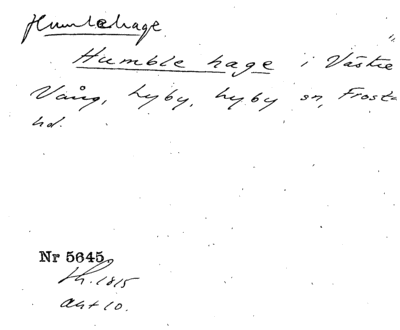 Humlehage
Humble hage i Västra
Vång, Hyby, Hyby sn, Frosta
hd.
Nr 5645
Sk. 1815
akt 10.